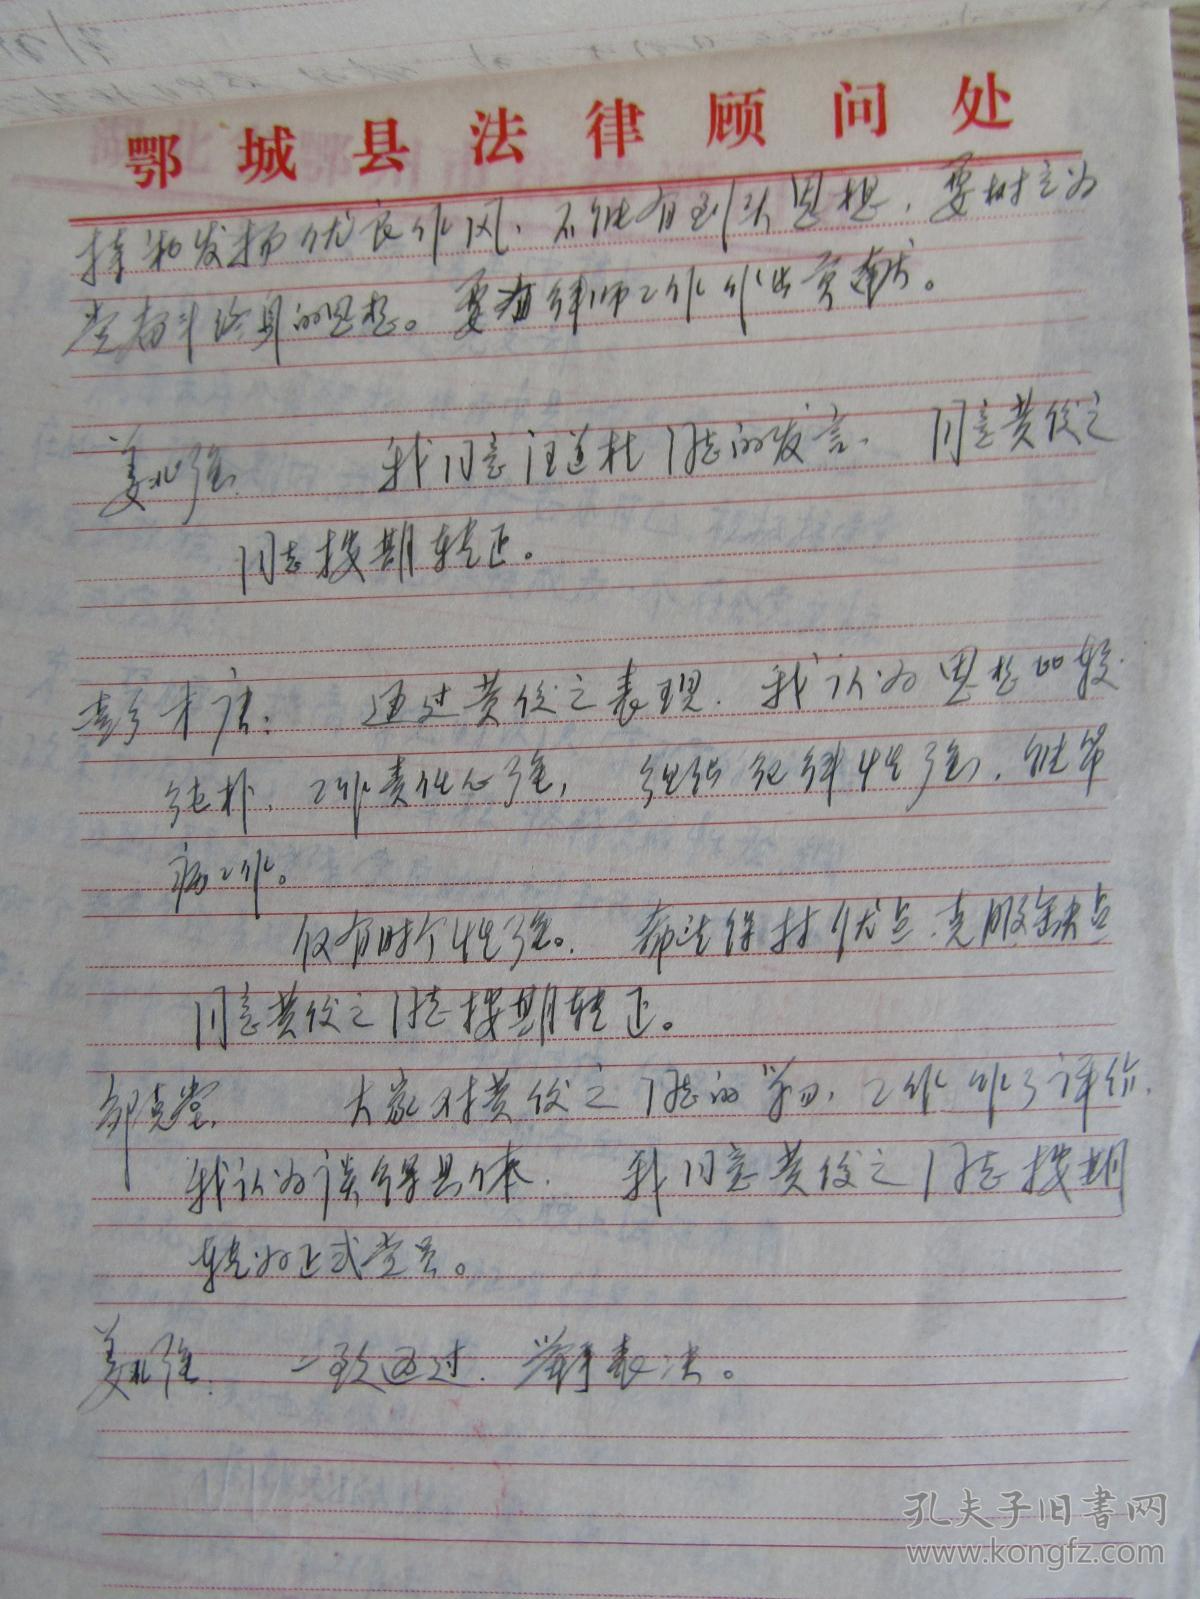 鄂城县法律顾问处
持和发扬优良作风，不能有到头思想，要树立为
党奋斗终身的思想。要为律师工作作出贡献。
姜兆强： 我同意汪道柱同志的发言， 同意黄俊之
同志按期转正。
彭才启： 通过黄俊之表现，我认为思想比较
纯朴，工作责任心强， 组织纪律性强，能带
病工作。
仅有时个性强。 希望保持优点，克服缺点
同意黄俊之同志按期转正。
邹克堂， 大家对黄俊之同志的学习，工作作了评价，
我认为谈得具体。 我同意黄俊之同志按期
转为正式党员。
姜兆强： 一致通过，举手表决。
孔夫子旧书网
www.kongfz.com